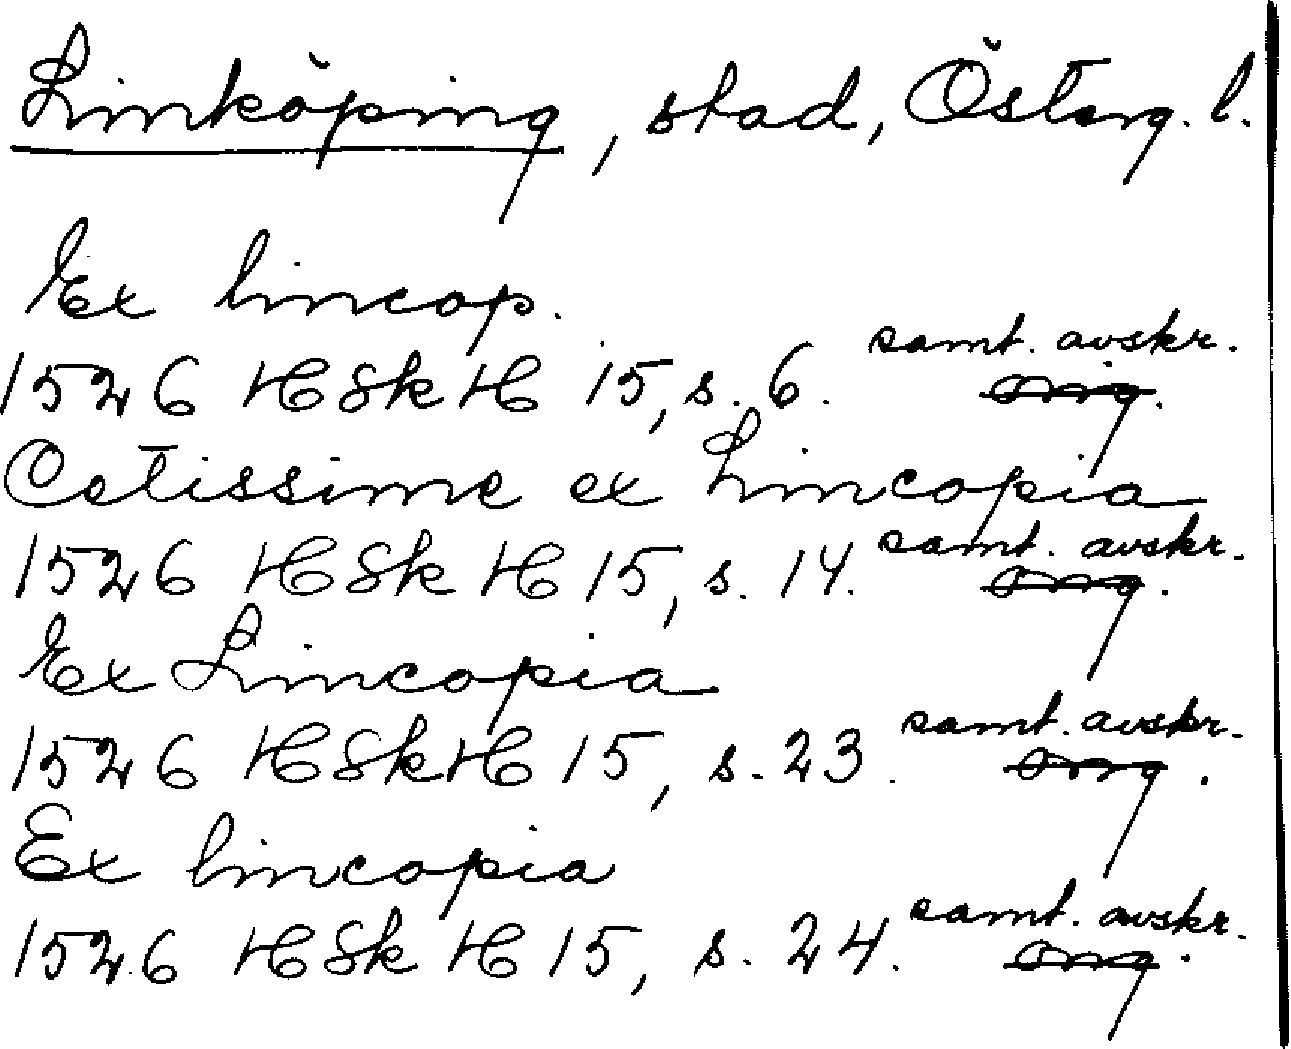 Linköping, stad, Österg. l.
Ex lincop.
1526 HSkH 15, s. 6. samt. avskr. orig.
Cetissime ex Lincopia
1526 HSkH 15, s. 14. samt. avskr. orig.
Ex Lincopia
1526 HSkH 15, s. 23. samt. avskr. orig.
Ex lincopia
1526 HSkH 15, s. 24. samt. avskr. orig.